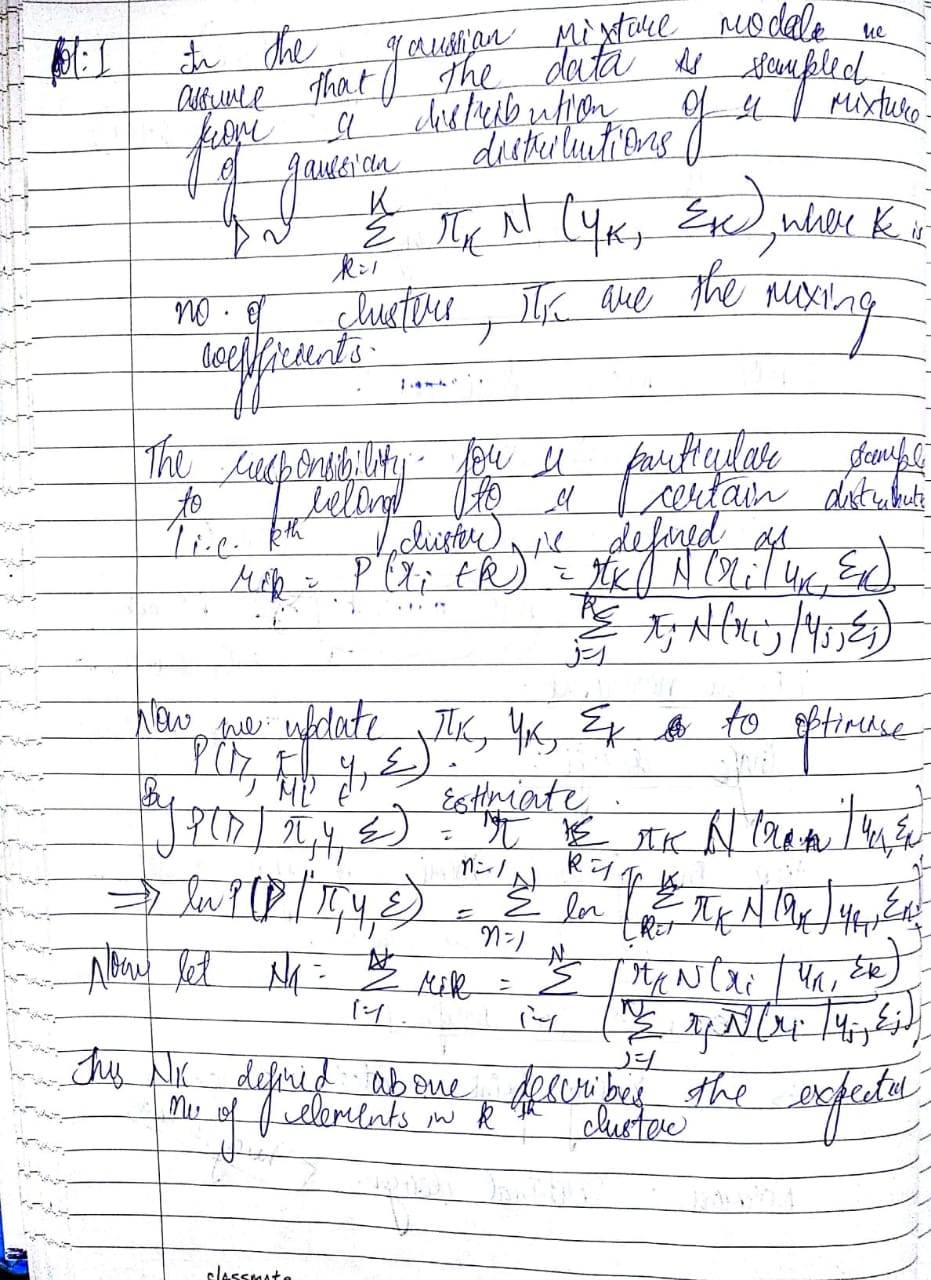 Sol:1 In the gaussian mixture models we
assume that the data is sampled
from a distribution of a mixture
of gaussian distributions
D ~ K Σ k=1 π_K N (μ_K, Σ_K), where K is
no. of clusters, π_K are the mixing
coefficients.
The responsibility for a particular sample
to belong to a certain distribute
(i.e. kth cluster) is defined as
r_ik = P(x_i ∈ k) = π_K N(x_i | μ_K, Σ_K)
K Σ j=1 π_j N(x_i, | μ_j, Σ_j)
Now we update π_K, μ_K, Σ_K to optimise
P(D, π, μ, Σ).
By MLE Estimate.
P(D | π, μ, Σ) = N π n=1 K Σ k=1 π_K N(x_n | μ_K, Σ_K
⇒ ln P(D | π, μ, Σ) = N Σ n=1 ln [K Σ k=1 π_K N(x_K | μ_K, Σ_K]
Now let N_K = N Σ i=1 r_ik = N Σ i=1 (π_K N(x_i | μ_K, Σ_K)
N Σ j=1 π_j N(x_i | μ_j, Σ_j)
This N_K defined above describes the expected
no of elements in k th cluster
classmate